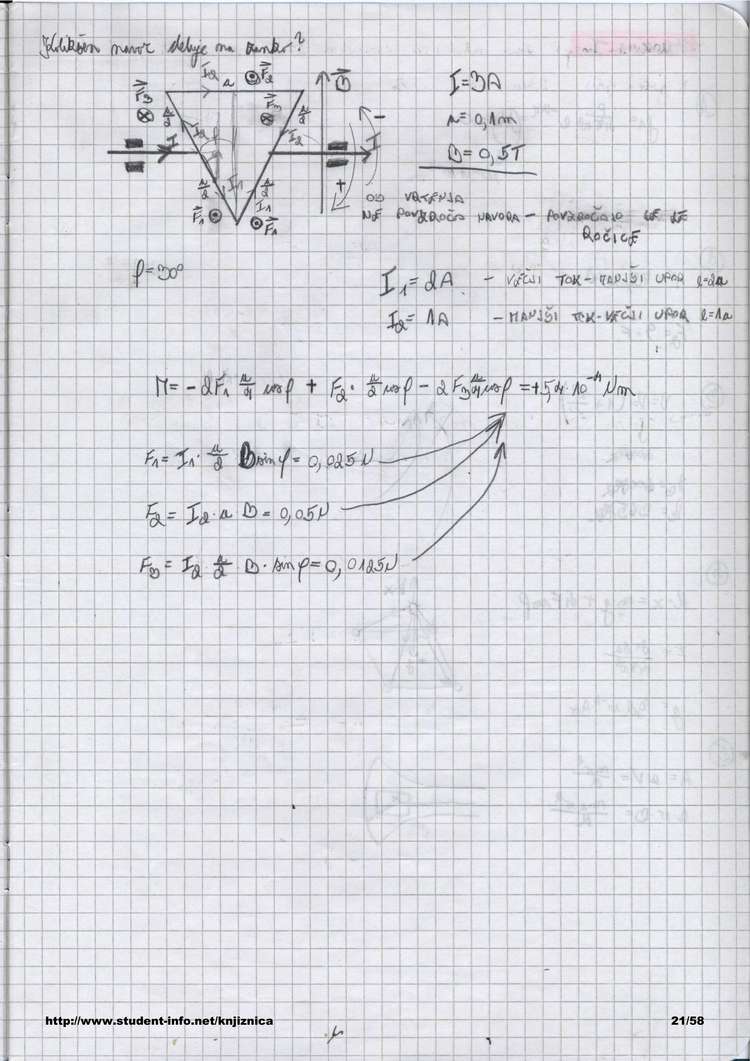 Kolikšen navor deluje na zanko?
I₂ a F⃗₂ B⃗ I = 3A
F⃗₃ a/2 F⃗₃ a/2 - a = 0,1m
I I₂ φ I₂ I B = 0,5T
a/2 I₁ a/2 I₁ + OS VRTENJA
F⃗₁ F⃗₁ NE POVZROČA NAVORA - POVZROČAJO LE
ROČICE
φ = 30°
I₁ = 2A - VEČJI TOK - MANJŠI UPOR l=2a
I₂ = 1A - MANJŠI TOK - VEČJI UPOR l=1a
M = - 2F₁ a/4 cosφ + F₂ · a/2 cosφ - 2 F₃ a/4 cosφ = +5,4 · 10⁻⁴ Nm
F₁ = I₁ · a/2 B sin φ = 0,025N
F₂ = I₂ · a B = 0,05N
F₃ = I₂ a/2 B · sin φ = 0,0125N
http://www.student-info.net/knjiznica 21/58